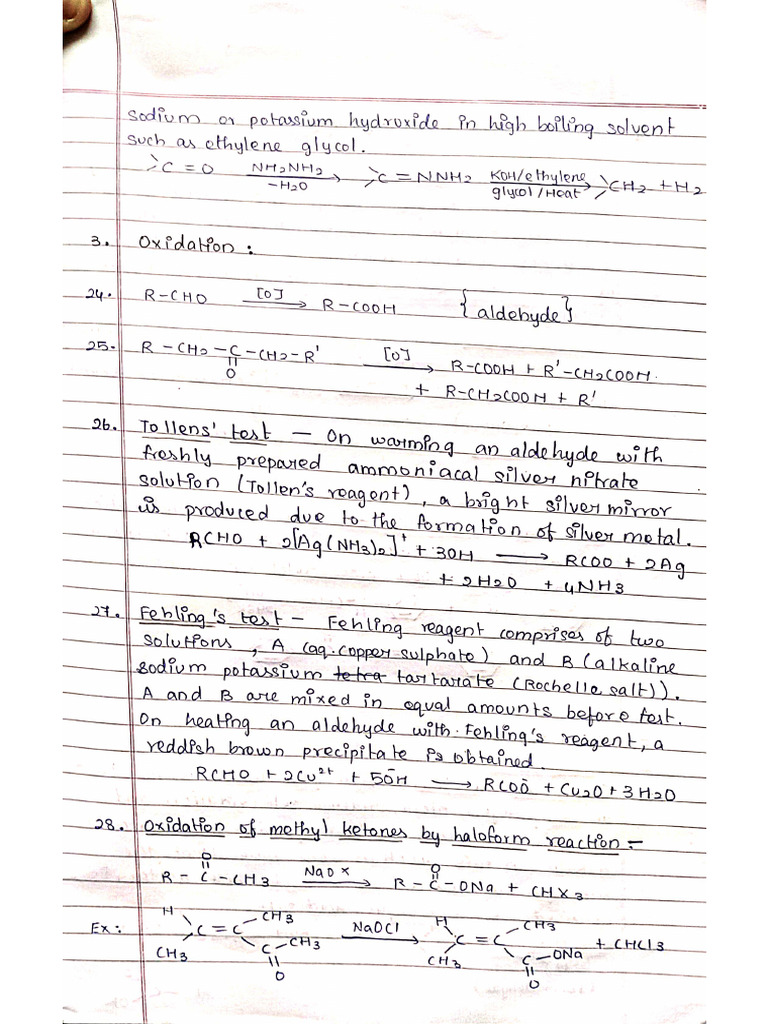 sodium or potassium hydroxide in high boiling solvent
such as ethylene glycol.
>C = O NH2NH2 / -H2O → >C = NNH2 KOH/ethylene glycol/Heat → >CH2 + H2
3. Oxidation :
24. R-CHO [O] → R-COOH {aldehyde}
25. R - CH2 - C - CH2 - R' [O] → R-COOH + R'-CH2COOH.
O + R-CH2COOH + R'
26. Tollens' test - On warming an aldehyde with
freshly prepared ammoniacal silver nitrate
solution (Tollen's reagent), a bright silver mirror
is produced due to the formation of silver metal.
RCHO + 2[Ag(NH3)2]+ + 3OH → RCOO + 2Ag
+ 2H2O + 4NH3
27. Fehling's test - Fehling reagent comprises of two
solutions, A (aq. copper sulphate) and B (alkaline
sodium potassium tetra tartarate (Rochelle salt)).
A and B are mixed in equal amounts before test.
On heating an aldehyde with Fehling's reagent, a
reddish brown precipitate is obtained.
RCHO + 2Cu2+ + 5ŌH → RCOŌ + Cu2O + 3H2O
28. Oxidation of methyl ketones by haloform reaction :-
O O
R - C - CH3 NaOX → R - C - ONa + CHX3
H CH3 H CH3
Ex: C = C NaOCl → C = C + CHCl3
CH3 C CH3 CH3 C - ONa
O O